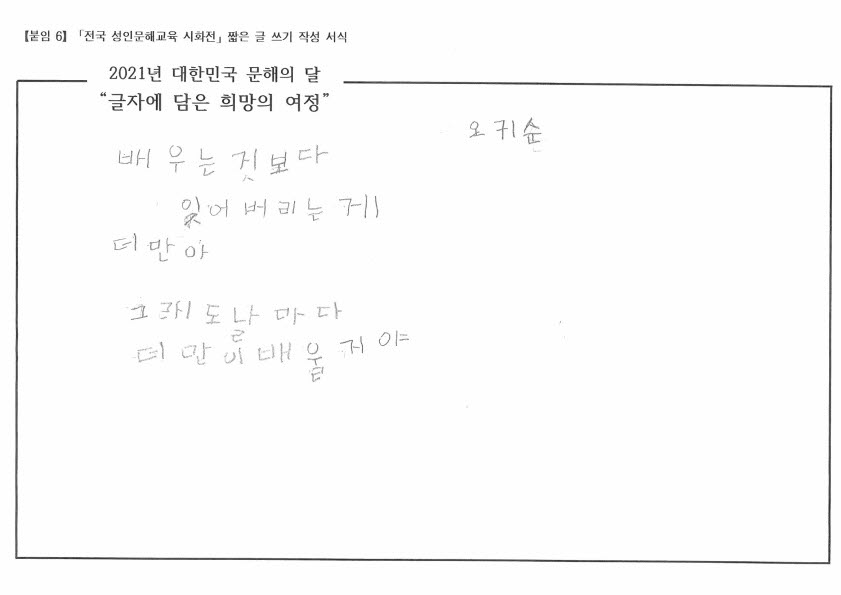 【붙임 6】 「전국 성인문해교육 시화전」 짧은 글 쓰기 작성 서식
2021년 대한민국 문해의 달
“글자에 담은 희망의 여정”
오귀순
배우는 것보다
잊어버리는 게
더 만아
그래도 날마다
더 만이 배울 거야